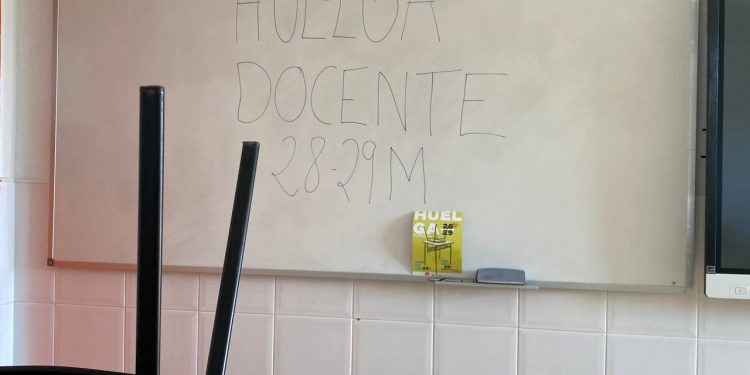 HUELGA
DOCENTE
28-29M
HUEL
GA 28
29